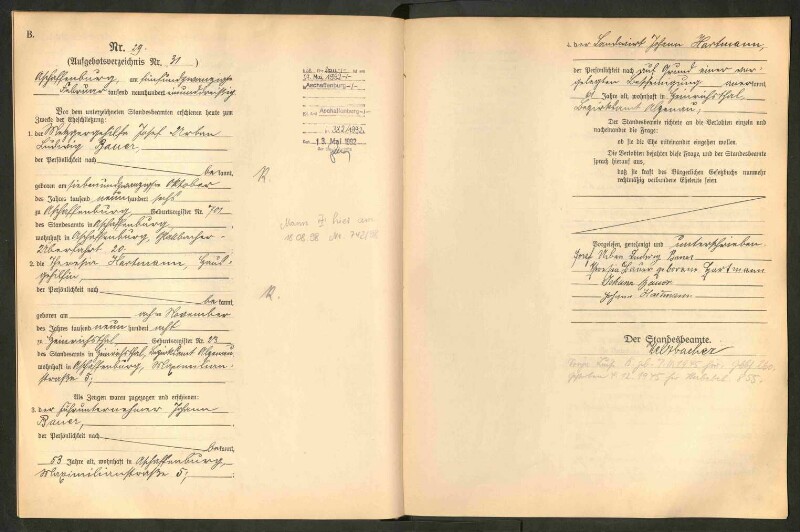 B.
Nr. 29.
(Aufgebotsverzeichnis Nr. 31)
Aschaffenburg, am fünfundzwanzigsten
Februar tausend neunhundert neununddreißig
Vor dem unterzeichneten Standesbeamten erschienen heute zum
Zwecke der Eheschließung:
1. der Metzgergehilfe Josef Urban
Ludwig Bauer,
der Persönlichkeit nach
bekannt,
geboren am siebenundzwanzigsten Oktober
des Jahres tausend neunhundert sechs
zu Aschaffenburg, Geburtsregister Nr. 701
des Standesamts in Aschaffenburg,
wohnhaft in Aschaffenburg,
Überfahrt 20.
2. die Theresia Hartmann,
gehilfin,
der Persönlichkeit nach
bekannt,
geboren am achten November
des Jahres tausend neunhundert acht
zu Heinrichsthal, Geburtsregister Nr. 23
des Standesamts in Heinrichsthal, Bezirksamt Alzenau,
wohnhaft in Aschaffenburg, Maximilian-
straße 5;
Als Zeugen waren zugezogen und erschienen:
3. der Fuhrunternehmer Johann
Bauer,
der Persönlichkeit nach
bekannt,
53 Jahre alt, wohnhaft in Aschaffenburg,
Maximilianstraße 5;
Aschaffenburg
13. Mai 1992
4. der Landwirt Johann Hartmann,
der Persönlichkeit nach auf Grund einer vor-
gelegten Bescheinigung anerkannt,
61 Jahre alt, wohnhaft in Heinrichsthal,
Bezirksamt Alzenau,
Der Standesbeamte richtete an die Verlobten einzeln und
nacheinander die Frage:
ob sie die Ehe miteinander eingehen wollen.
Die Verlobten bejahten diese Frage und der Standesbeamte
sprach hierauf aus,
daß sie kraft des Bürgerlichen Gesetzbuchs nunmehr
rechtmäßig verbundene Eheleute seien.
Vorgelesen, genehmigt und unterschrieben
Josef Urban Ludwig Bauer
Theresia Bauer geborene Hartmann
Johann Bauer
Johann Hartmann
Der Standesbeamte.